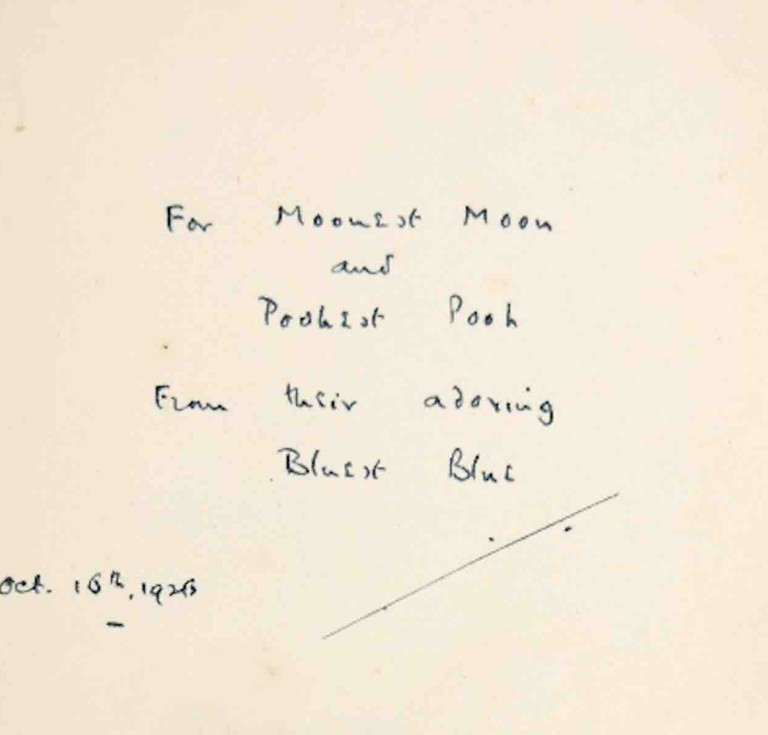 For Moonest Moon
and
Poohest Pooh
From their adoring
Bluest Blue
Oct. 16th, 1926